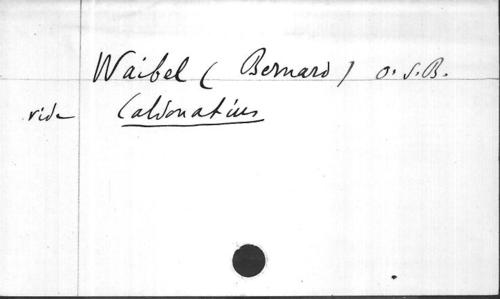 Waibel (Bernard) O.S.B.
vide Caldonatius